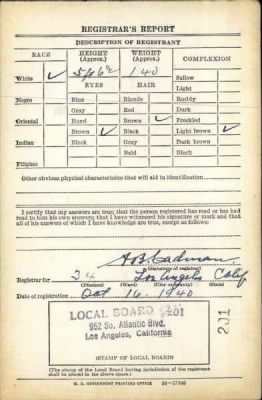 REGISTRAR'S REPORT
DESCRIPTION OF REGISTRANT
RACE HEIGHT (Approx.) WEIGHT (Approx.) COMPLEXION
White ✓ 5 ft 6 140 Sallow
EYES HAIR Light
Negro Blue Blonde Ruddy
Gray Red Dark
Oriental Hazel Brown ✓ Freckled
Brown ✓ Black Light brown ✓
Indian Black Gray Dark brown
Bald Black
Filipino
Other obvious physical characteristics that will aid in identification
I certify that my answers are true; that the person registered has read or has had
read to him his own answers; that I have witnessed his signature or mark and that
all of his answers of which I have knowledge are true, except as follows:
Cadman
(Signature of registrar)
Registrar for 24 Los Angeles Calif
(Precinct) (Ward) (City or county) (State)
Date of registration Oct 16, 1940
LOCAL BOARD 201
952 So. Atlantic Blvd.
Los Angeles, California
201
STAMP OF LOCAL BOARD
(The stamp of the Local Board having jurisdiction of the registrant
shall be placed in the above space.)
U. S. GOVERNMENT PRINTING OFFICE